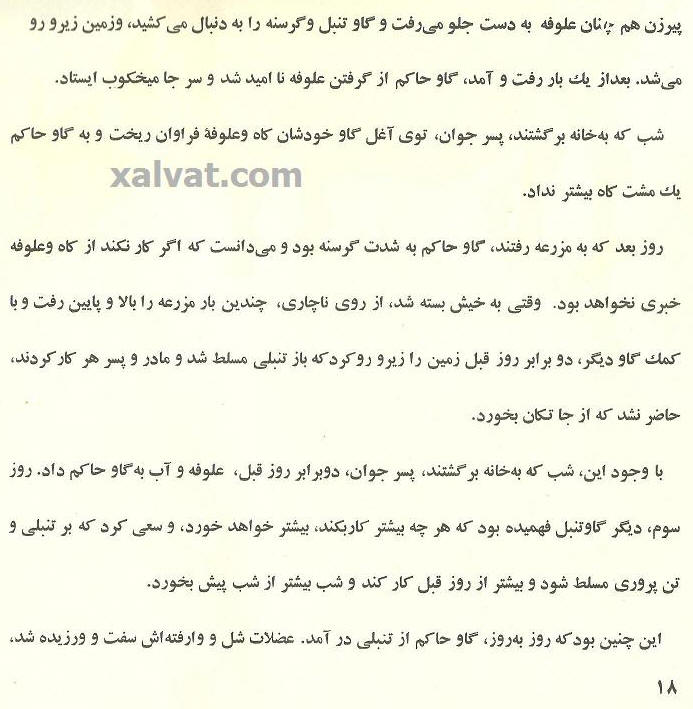 پیرزن هم چنان علوفه به دست جلو می‌رفت و گاو تنبل وگرسنه را به دنبال می‌کشید، وزمین زیرو رو
می‌شد. بعداز یك بار رفت و آمد، گاو حاکم از گرفتن علوفه نا امید شد و سر جا میخکوب ایستاد.
شب که به‌خانه برگشتند، پسر جوان، توی آغل گاو خودشان کاه وعلوفهٔ فراوان ریخت و به گاو حاکم
xalvat.com
یك مشت کاه بیشتر نداد.
روز بعد که به مزرعه رفتند، گاو حاکم به شدت گرسنه بود و می‌دانست که اگر کار نکند از کاه وعلوفه
خبری نخواهد بود. وقتی به خیش بسته شد، از روی ناچاری، چندین بار مزرعه را بالا و پایین رفت و با
کمك گاو دیگر، دو برابر روز قبل زمین را زیرو روکردکه باز تنبلی مسلط شد و مادر و پسر هر کارکردند،
حاضر نشد که از جا تکان بخورد.
با وجود این، شب که به‌خانه برگشتند، پسر جوان، دوبرابر روز قبل، علوفه و آب به‌گاو حاکم داد. روز
سوم، دیگر گاوتنبل فهمیده بود که هر چه بیشتر کاربکند، بیشتر خواهد خورد، و سعی کرد که بر تنبلی و
تن پروری مسلط شود و بیشتر از روز قبل کار کند و شب بیشتر از شب پیش بخورد.
این چنین بودکه روز به‌روز، گاو حاکم از تنبلی در آمد. عضلات شل و وارفته‌اش سفت و ورزیده شد،
۱۸